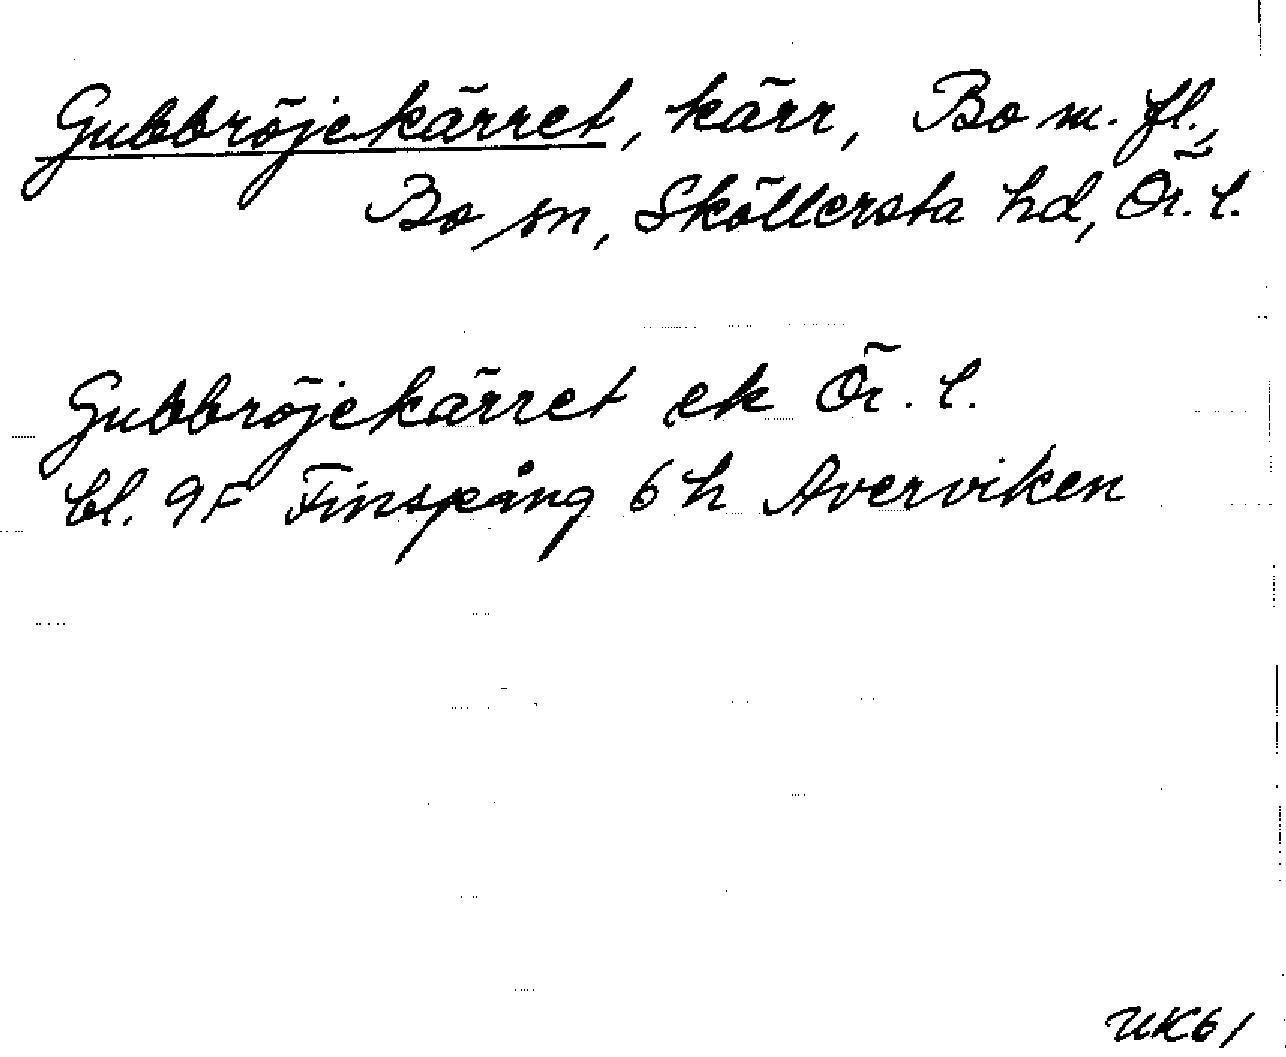 Gubbröjekärret, kärr, Bo m. fl.,
Bo sn, Sköllersta hd, Ör. l.
Gubbröjekärret ek Ör. l.
bl. 9F Finspång 6 h Averviken
UK61